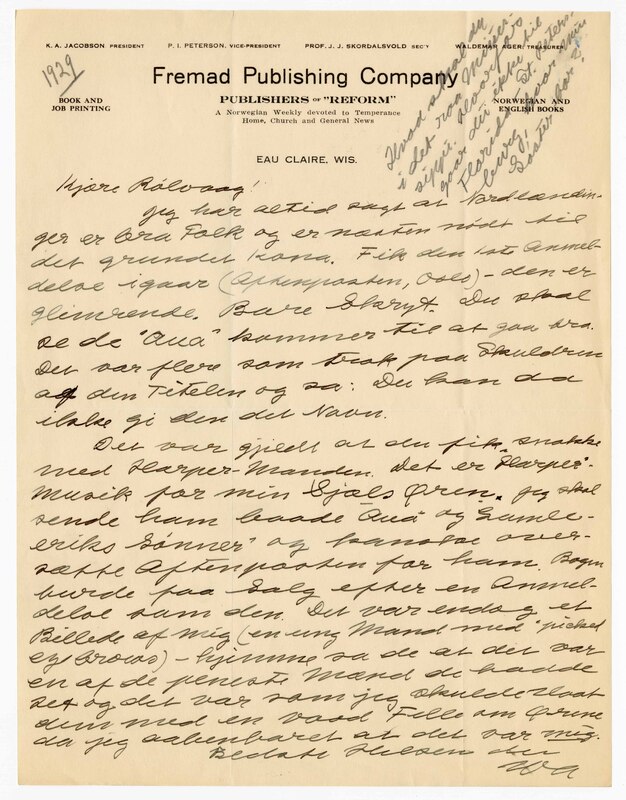 K. A. JACOBSON PRESIDENT P. I. PETERSON, VICE-PRESIDENT PROF. J. J. SKORDALSVOLD SEC'Y WALDEMAR AGER, TREASURER
1929
Fremad Publishing Company
BOOK AND
JOB PRINTING
PUBLISHERS OF "REFORM"
A Norwegian Weekly devoted to Temperance
Home, Church and General News
NORWEGIAN AND
ENGLISH BOOKS
EAU CLAIRE, WIS.
Hvad skal du
i det raa Missis-
sippi. Hvorfor
gaar du ikke til
Florida St. Peters-
burg, hvor min
Søster bor?
Kjære Rølvaag!
Jeg har altid sagt at Nordlændin-
ger er bra Folk og er næsten nødt til
det grundet Kona. Fik den 1ste Anmel-
delse igaar (Aftenposten, Oslo) – den er
glimrende. Bare Skryt. Du skal
se de "Aua" kommer til at gaa bra.
Det var flere som trak paa Skuldren
af den Titelen og sa: Du kan da
ikke gi den det Navn.
Det var gjildt at du fik snakke
med Harper-Manden. Det er "Harpe"-
musik for min Sjæls Øren. Jeg skal
sende ham baade "Aua" og "Gamle-
eriks Sønner" og kanske over-
sætte Aftenposten for ham. Bogen
burde faa Salg efter en Anmel-
delse som den. Det var endog et
Billede af mig (en ung Mand med "picked
eye brows) – hjemme sa de at det var
en af de peneste Mænd de hadde
set og det var som jeg skulde slaat
dem med en vaad Fille om Ørene
da jeg aabenbaret at det var mig.
Bedste Hilsen din
WA